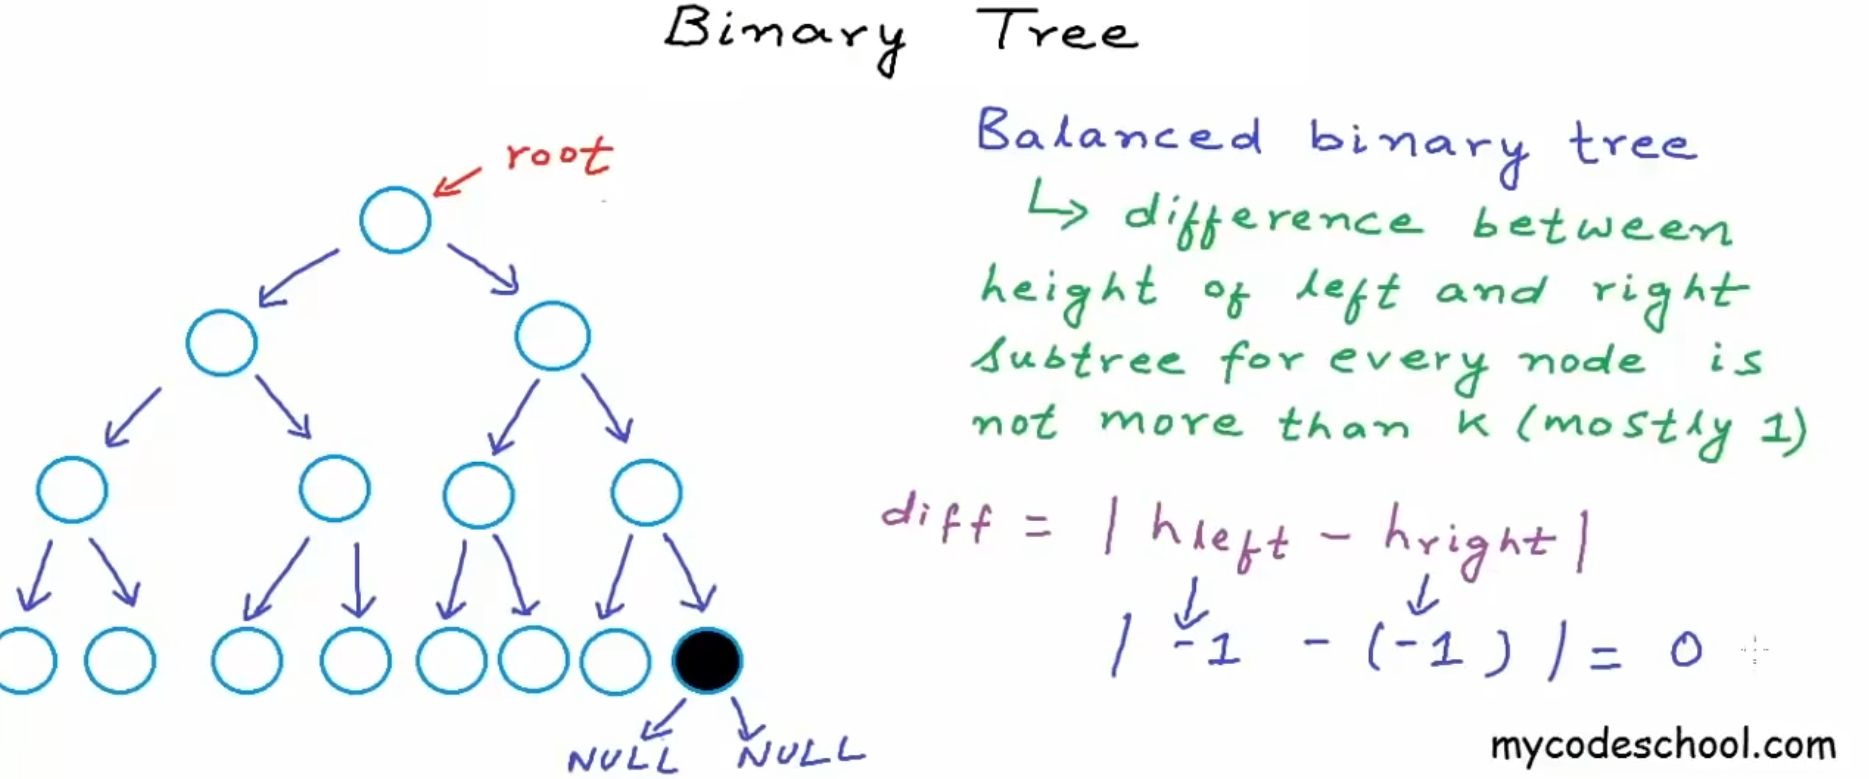 Binary Tree
root
Balanced binary tree
↳ difference between
height of left and right
subtree for every node is
not more than k (mostly 1)
diff = | hleft - hright |
| -1 - (-1) | = 0
NULL NULL
mycodeschool.com